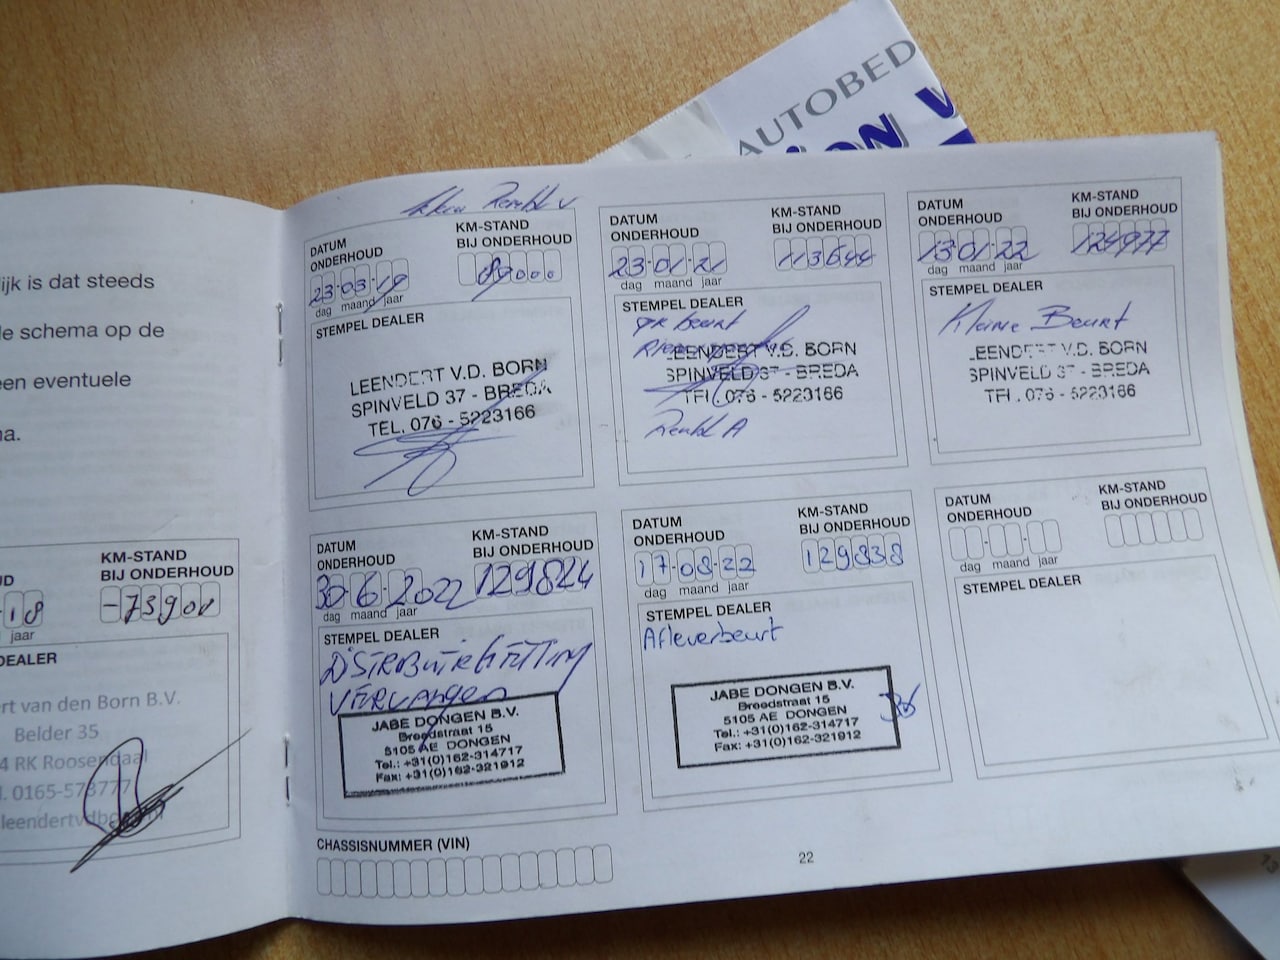 AUTOBED
ijk is dat steeds
le schema op de
een eventuele
na.
KM-STAND
BIJ ONDERHOUD
18
jaar
DEALER
rt van den Born B.V.
Belder 35
4 RK Roosendaal
DATUM
ONDERHOUD
KM-STAND
BIJ ONDERHOUD
23-03-19
89000
dag maand jaar
STEMPEL DEALER
LEENDERT V.D. BORN
SPINVELD 37 - BREDA
TEL. 076 - 5223166
DATUM
ONDERHOUD
KM-STAND
BIJ ONDERHOUD
23-01-21
113644
dag maand jaar
STEMPEL DEALER
gr beurt
LEENDERT V.D. BORN
SPINVELD 37 - BREDA
TEL. 076 - 5223166
DATUM
ONDERHOUD
KM-STAND
BIJ ONDERHOUD
13-01-22
124977
dag maand jaar
STEMPEL DEALER
Kleine Beurt
LEENDERT V.D. BORN
SPINVELD 37 - BREDA
TEL. 076 - 5223166
DATUM
ONDERHOUD
KM-STAND
BIJ ONDERHOUD
30-6-2022
129824
dag maand jaar
STEMPEL DEALER
DISTRIBUTIEKETTING
VERVANGEN
JABE DONGEN B.V.
Breedstraat 15
5105 AE DONGEN
Tel.: +31(0)162-314717
Fax: +31(0)162-321912
DATUM
ONDERHOUD
KM-STAND
BIJ ONDERHOUD
17-08-22
129838
dag maand jaar
STEMPEL DEALER
Afleverbeurt
JABE DONGEN B.V.
Breedstraat 15
5105 AE DONGEN
Tel.: +31(0)162-314717
Fax: +31(0)162-321912
DATUM
ONDERHOUD
KM-STAND
BIJ ONDERHOUD
dag maand jaar
STEMPEL DEALER
CHASSISNUMMER (VIN)
22